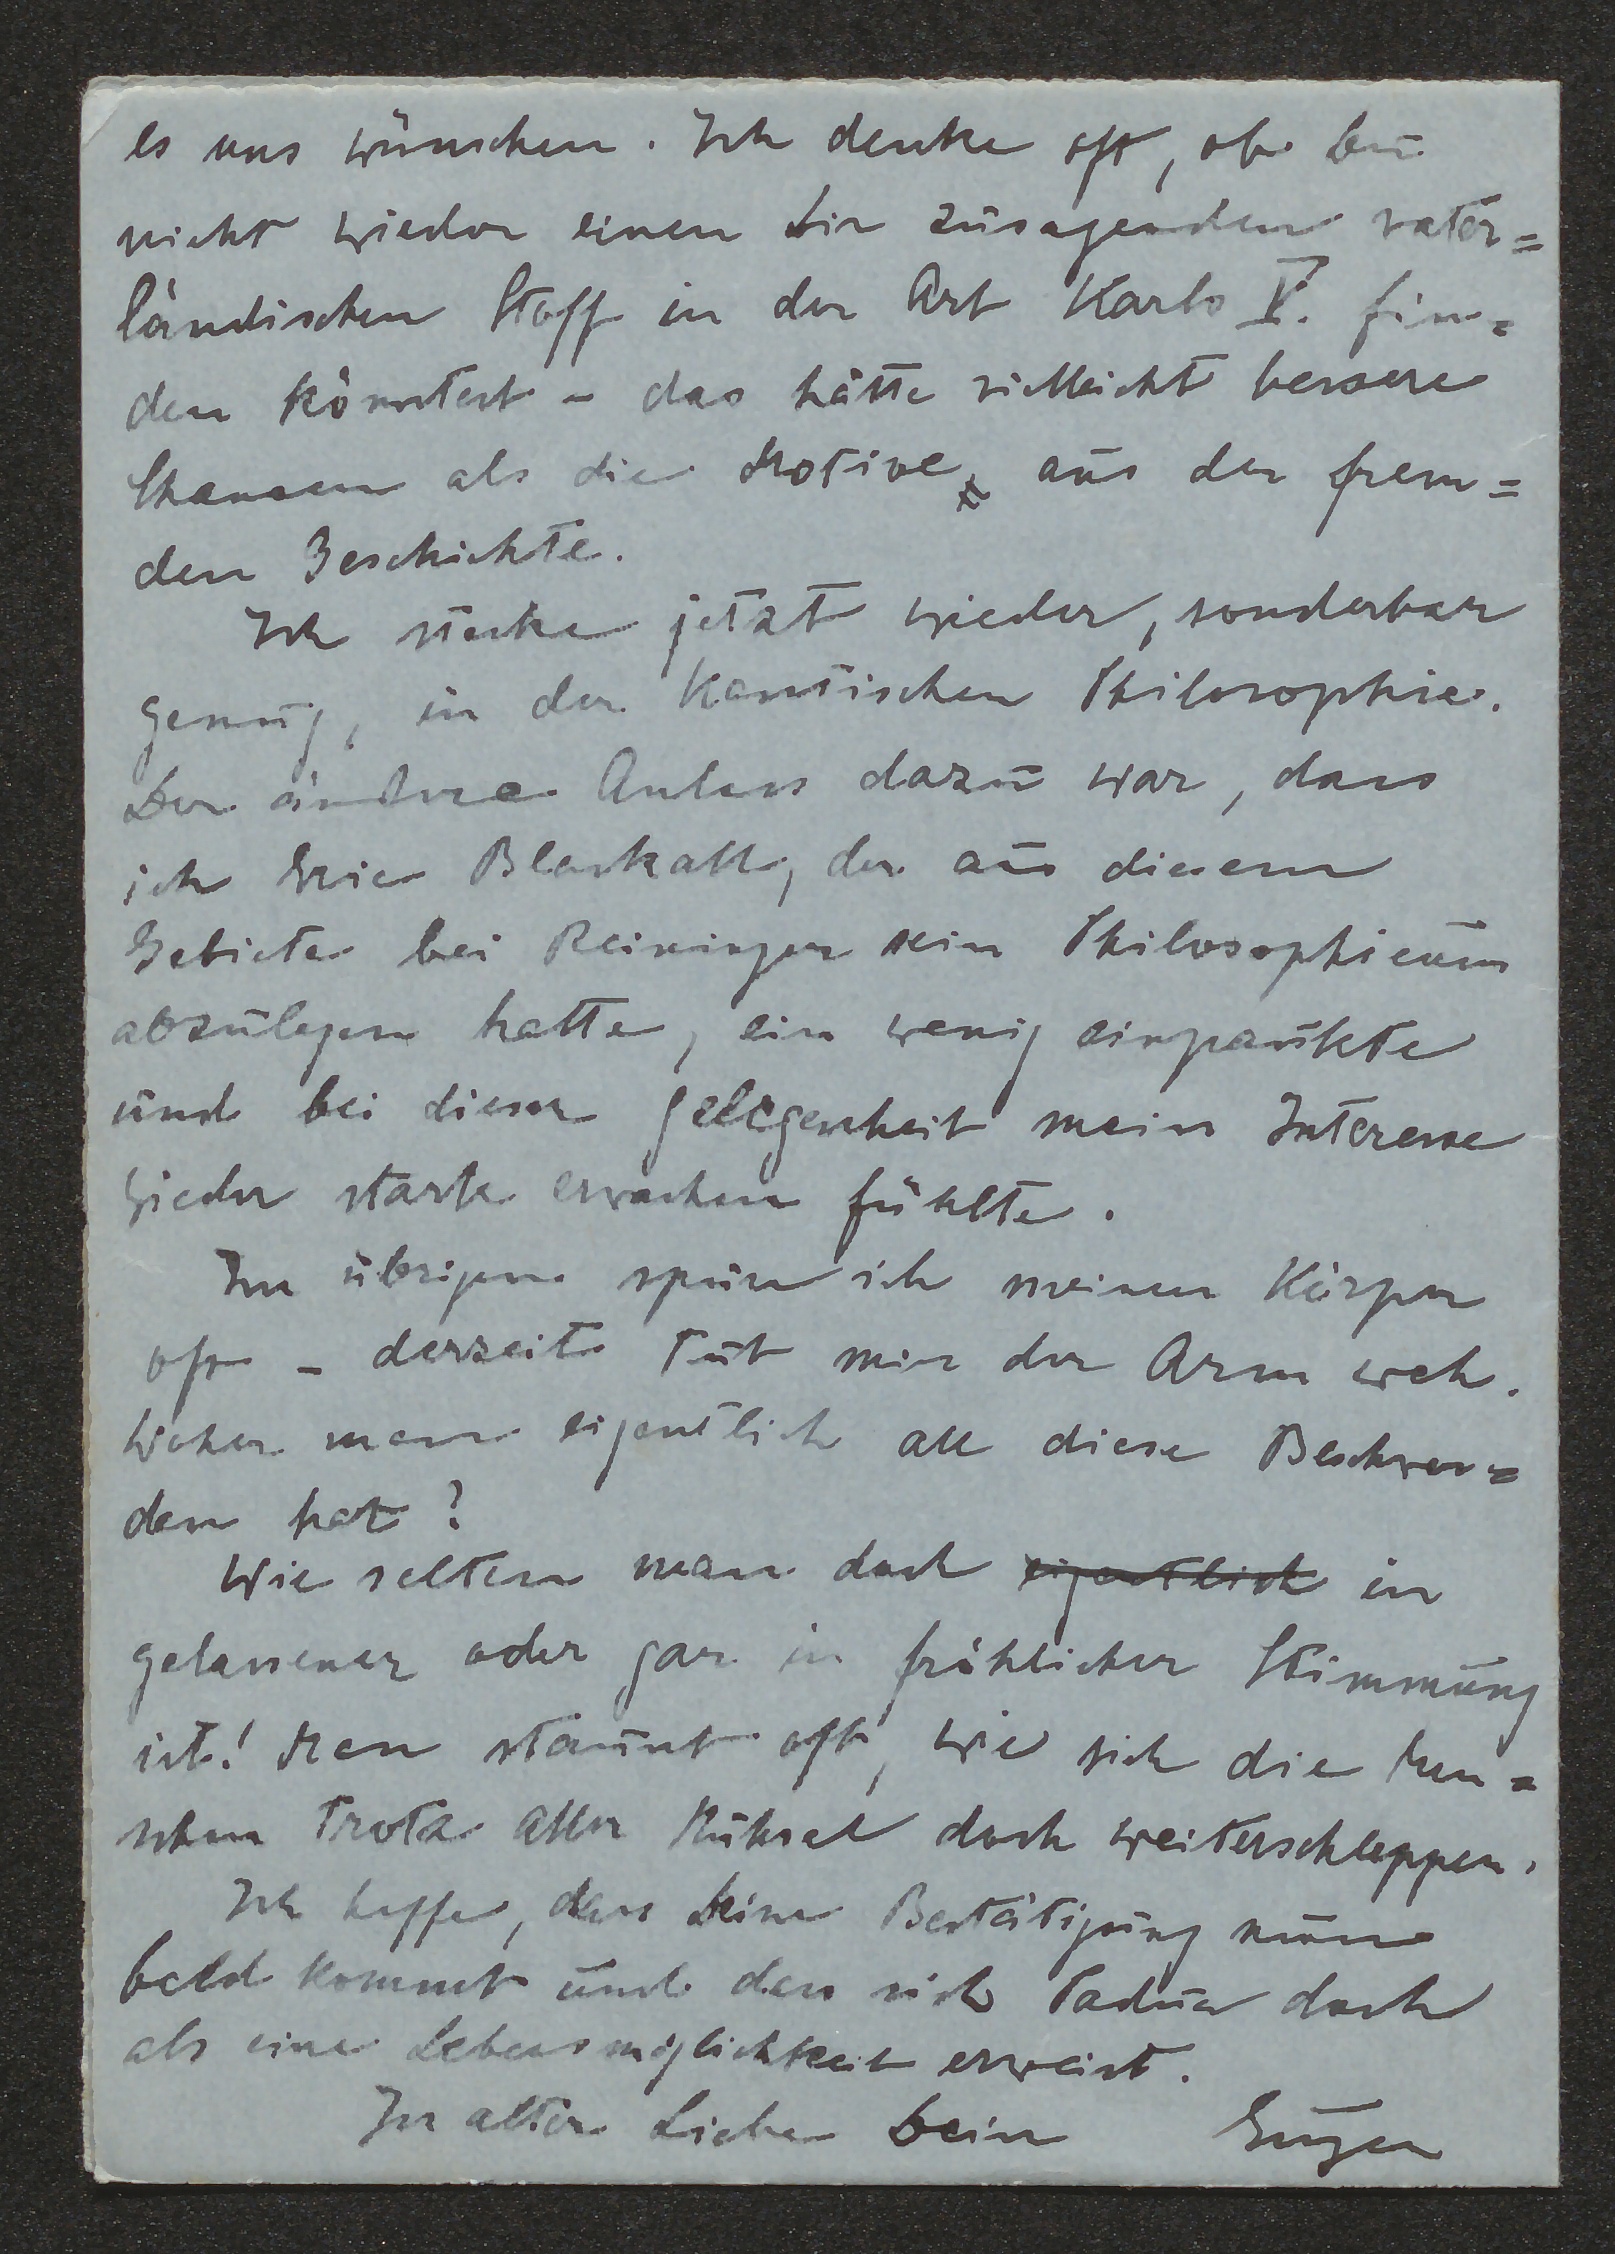 es uns wünschen. Ich denke oft, ob Du
nicht wieder einen Dir zusagenden vater=
ländischen Stoff in der Art Karls V. fin=
den könntest – das hätte vielleicht bessere
Chancen als die Motive aus der frem=
den Geschichte.
Ich stecke jetzt wieder, sonderbar
genug, in der Kantischen Philosophie.
Der äussere Anlass dazu war, dass
ich Eric Blackall, der aus diesem
Gebiete bei Reininger sein Philosophicum
abzulegen hatte, ein wenig einpaukte
und bei dieser Gelegenheit mein Interesse
wieder stark erwachen fühlte.
Im übrigen spüre ich meinen Körper
oft – derzeit tut mir der Arm weh.
Woher man eigentlich all diese Beschwer=
den hat?
Wie selten man doch eigentlich in
gelassener oder gar in fröhlicher Stimmung
ist! Man staunt oft, wie sich die Men=
schen trotz aller Mühsal doch weiterschleppen.
Ich hoffe, dass Deine Bestätigung nun
bald kommt und dass sich Padua doch
als eine Lebensmöglichkeit erweist.
In alter Liebe Dein Eugen